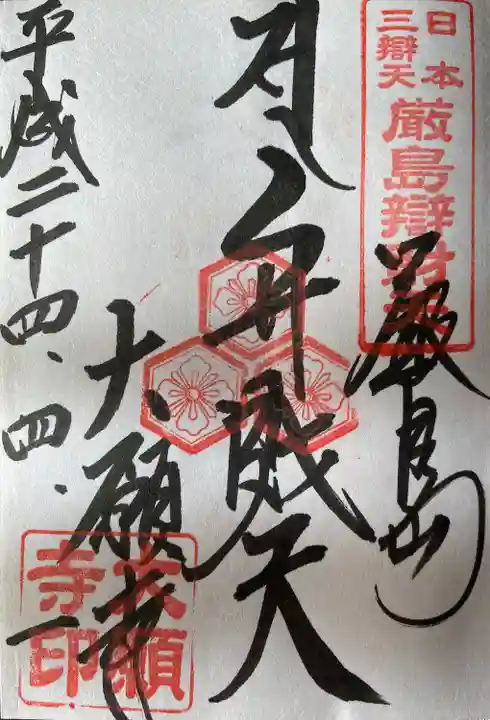 日本
三辯天
厳島辯財天
嚴島
弁財天
大願寺
大願寺印
平成二十四、四、一